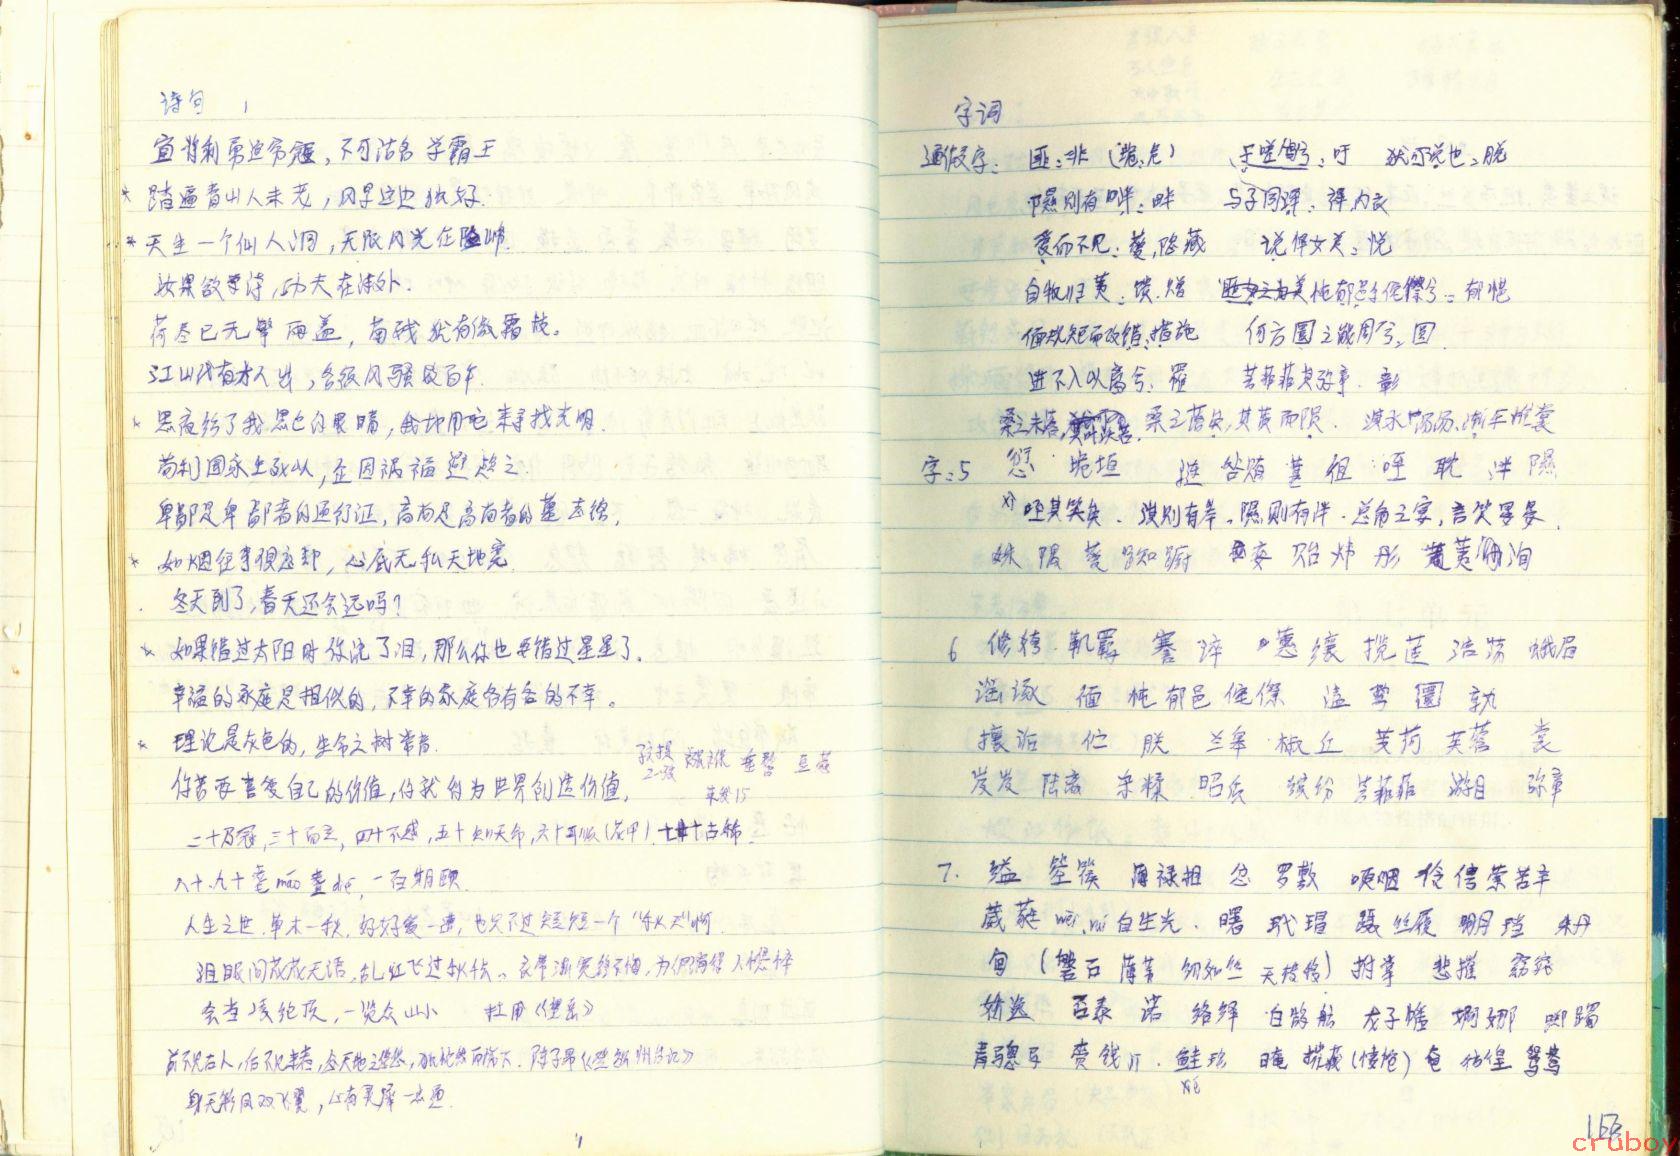 诗句 1
宜将剩勇追穷寇，不可沽名学霸王
* 踏遍青山人未老，风景这边独好.
* 天生一个仙人洞，无限风光在险峰.
汝果欲学诗，功夫在诗外.
荷尽已无擎雨盖，菊残犹有傲霜枝。
江山代有才人出，各领风骚数百年.
* 黑夜给了我黑色的眼睛，我却用它来寻找光明.
苟利国家生死以，岂因祸福避趋之
卑鄙是卑鄙者的通行证，高尚是高尚者的墓志铭.
* 如烟往事俱忘却，心底无私天地宽.
冬天到了，春天还会远吗？
* 如果错过太阳时你流了泪，那么你也要错过星星了.
幸福的家庭是相似的，不幸的家庭各有各的不幸。
* 理论是灰色的，生命之树常青.
孩提 襁褓 垂髫 豆蔻
2-3岁
你若要喜爱自己的价值，你就得为世界创造价值.
及笄15
二十弱冠，三十而立，四十不惑，五十知天命，六十耳顺(花甲).七十古稀.
八十.九十耄mào耋dié，一百期颐
人生之世.草木一秋，好好爱一遭，也只不过短短一个“秋天”啊
泪眼问花花无语，乱红飞过秋千。衣带渐宽终不悔，为伊消得人憔悴
会当凌绝顶，一览众山小 杜甫《望岳》
前不见古人，后不见来者，念天地之悠悠，独怆然而涕下.陈子昂《登幽州台记》
身无彩凤双飞翼，心有灵犀一点通.
字词
通假字： 匪：非 (诡：危) 于嗟鸠兮：吁 犹可说也：脱
隰则有泮：畔 与子同泽：襗内衣
爱而不见：薆，隐藏 说怿女美：悦
自牧归荑：馈.赠 忳郁邑余侘傺兮：郁悒
偭规矩而改错：措施 何方圜之能周兮：圆
进不入以离兮：罹 芳菲菲其弥章.彰
桑之未落， 桑之落矣，其黄而陨. 淇水汤汤.渐车帷裳
字：5 愆 垝垣 筮 咎贿 徂 咥 耽 泮 隰
咥其笑矣.淇则有岸，隰则有泮.总角之宴，言笑晏晏.
姝 隅 薆 踟蹰 娈 贻 炜 彤 荑 洵
6 修姱 鞿羁 謇 谇 蕙纕 揽茝 浩荡 蛾眉
谣诼 偭 忳郁邑 侘傺 溘 鸷 圜 轨
攘诟 伫 朕 兰皋 椒丘 芰荷 芙蓉 裳
岌岌 陆离 杂糅 昭质 缤纷 芳菲菲 游目 弥章
7. 箜篌 薄禄相 忿 罗敷
葳蕤 wēi.ruí 自生光. 曙 玳瑁 蹑丝履 明月珰 朱丹
(磐石 蒲苇 纫如丝 ) 拊掌 悲摧 窈窕
娇逸 否泰 诺 络绎 白鹄舫 龙子幡 婀娜 踯躅
青骢马 赍钱 . 鲑珍 晻 摧藏(悽怆) 奄 彷徨 鸳鸯
xié
cruboy